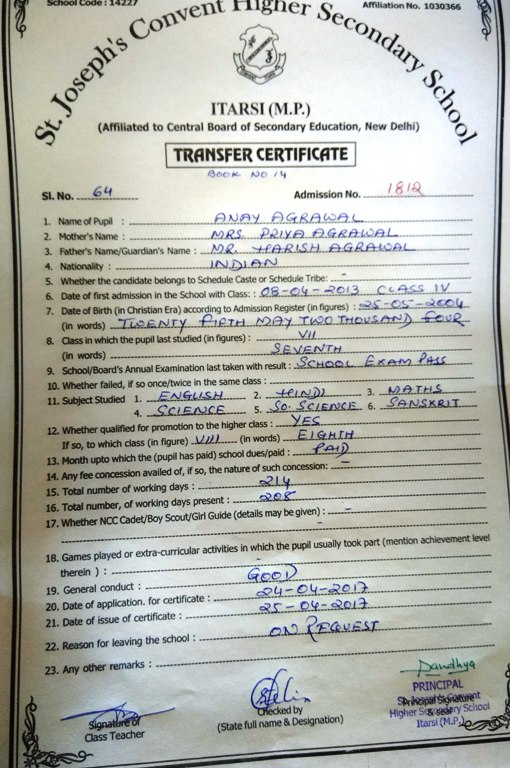 School Code : 14227
Affiliation No. 1030366
St. Joseph's Convent Higher Secondary School
ITARSI (M.P.)
(Affiliated to Central Board of Secondary Education, New Delhi)
TRANSFER CERTIFICATE
BOOK NO 14
Sl. No. 64 Admission No. 1812
1. Name of Pupil : ANAY AGRAWAL
2. Mother's Name : MRS. PRIYA AGRAWAL
3. Father's Name/Guardian's Name : MR. HARISH AGRAWAL
4. Nationality : INDIAN
5. Whether the candidate belongs to Schedule Caste or Schedule Tribe: -
6. Date of first admission in the School with Class : 08-04-2013 CLASS IV
7. Date of Birth (in Christian Era) according to Admission Register (in figures) : 25-05-2004
(in words) TWENTY FIFTH MAY TWO THOUSAND FOUR
8. Class in which the pupil last studied (in figures) : VII
(in words) SEVENTH
9. School/Board's Annual Examination last taken with result : SCHOOL EXAM PASS
10. Whether failed, if so once/twice in the same class :
11. Subject Studied 1. ENGLISH 2. HINDI 3. MATHS
4. SCIENCE 5. SO. SCIENCE 6. SANSKRIT
12. Whether qualified for promotion to the higher class : YES
If so, to which class (in figure) VIII (in words) EIGHTH
13. Month upto which the (pupil has paid) school dues/paid : PAID
14. Any fee concession availed of, if so, the nature of such concession: -
15. Total number of working days : 214
16. Total number, of working days present : 208
17. Whether NCC Cadet/Boy Scout/Girl Guide (details may be given) : -
18. Games played or extra-curricular activities in which the pupil usually took part (mention achievement level
therein ) : -
19. General conduct : GOOD
20. Date of application. for certificate : 24-04-2017
21. Date of issue of certificate : 25-04-2017
22. Reason for leaving the school : ON REQUEST
23. Any other remarks :
Signature of
Class Teacher
Checked by
(State full name & Designation)
Sandhya
PRINCIPAL
St. Joseph's Convent
Principal Signature
& seal
Higher Secondary School
Itarsi (M.P.)